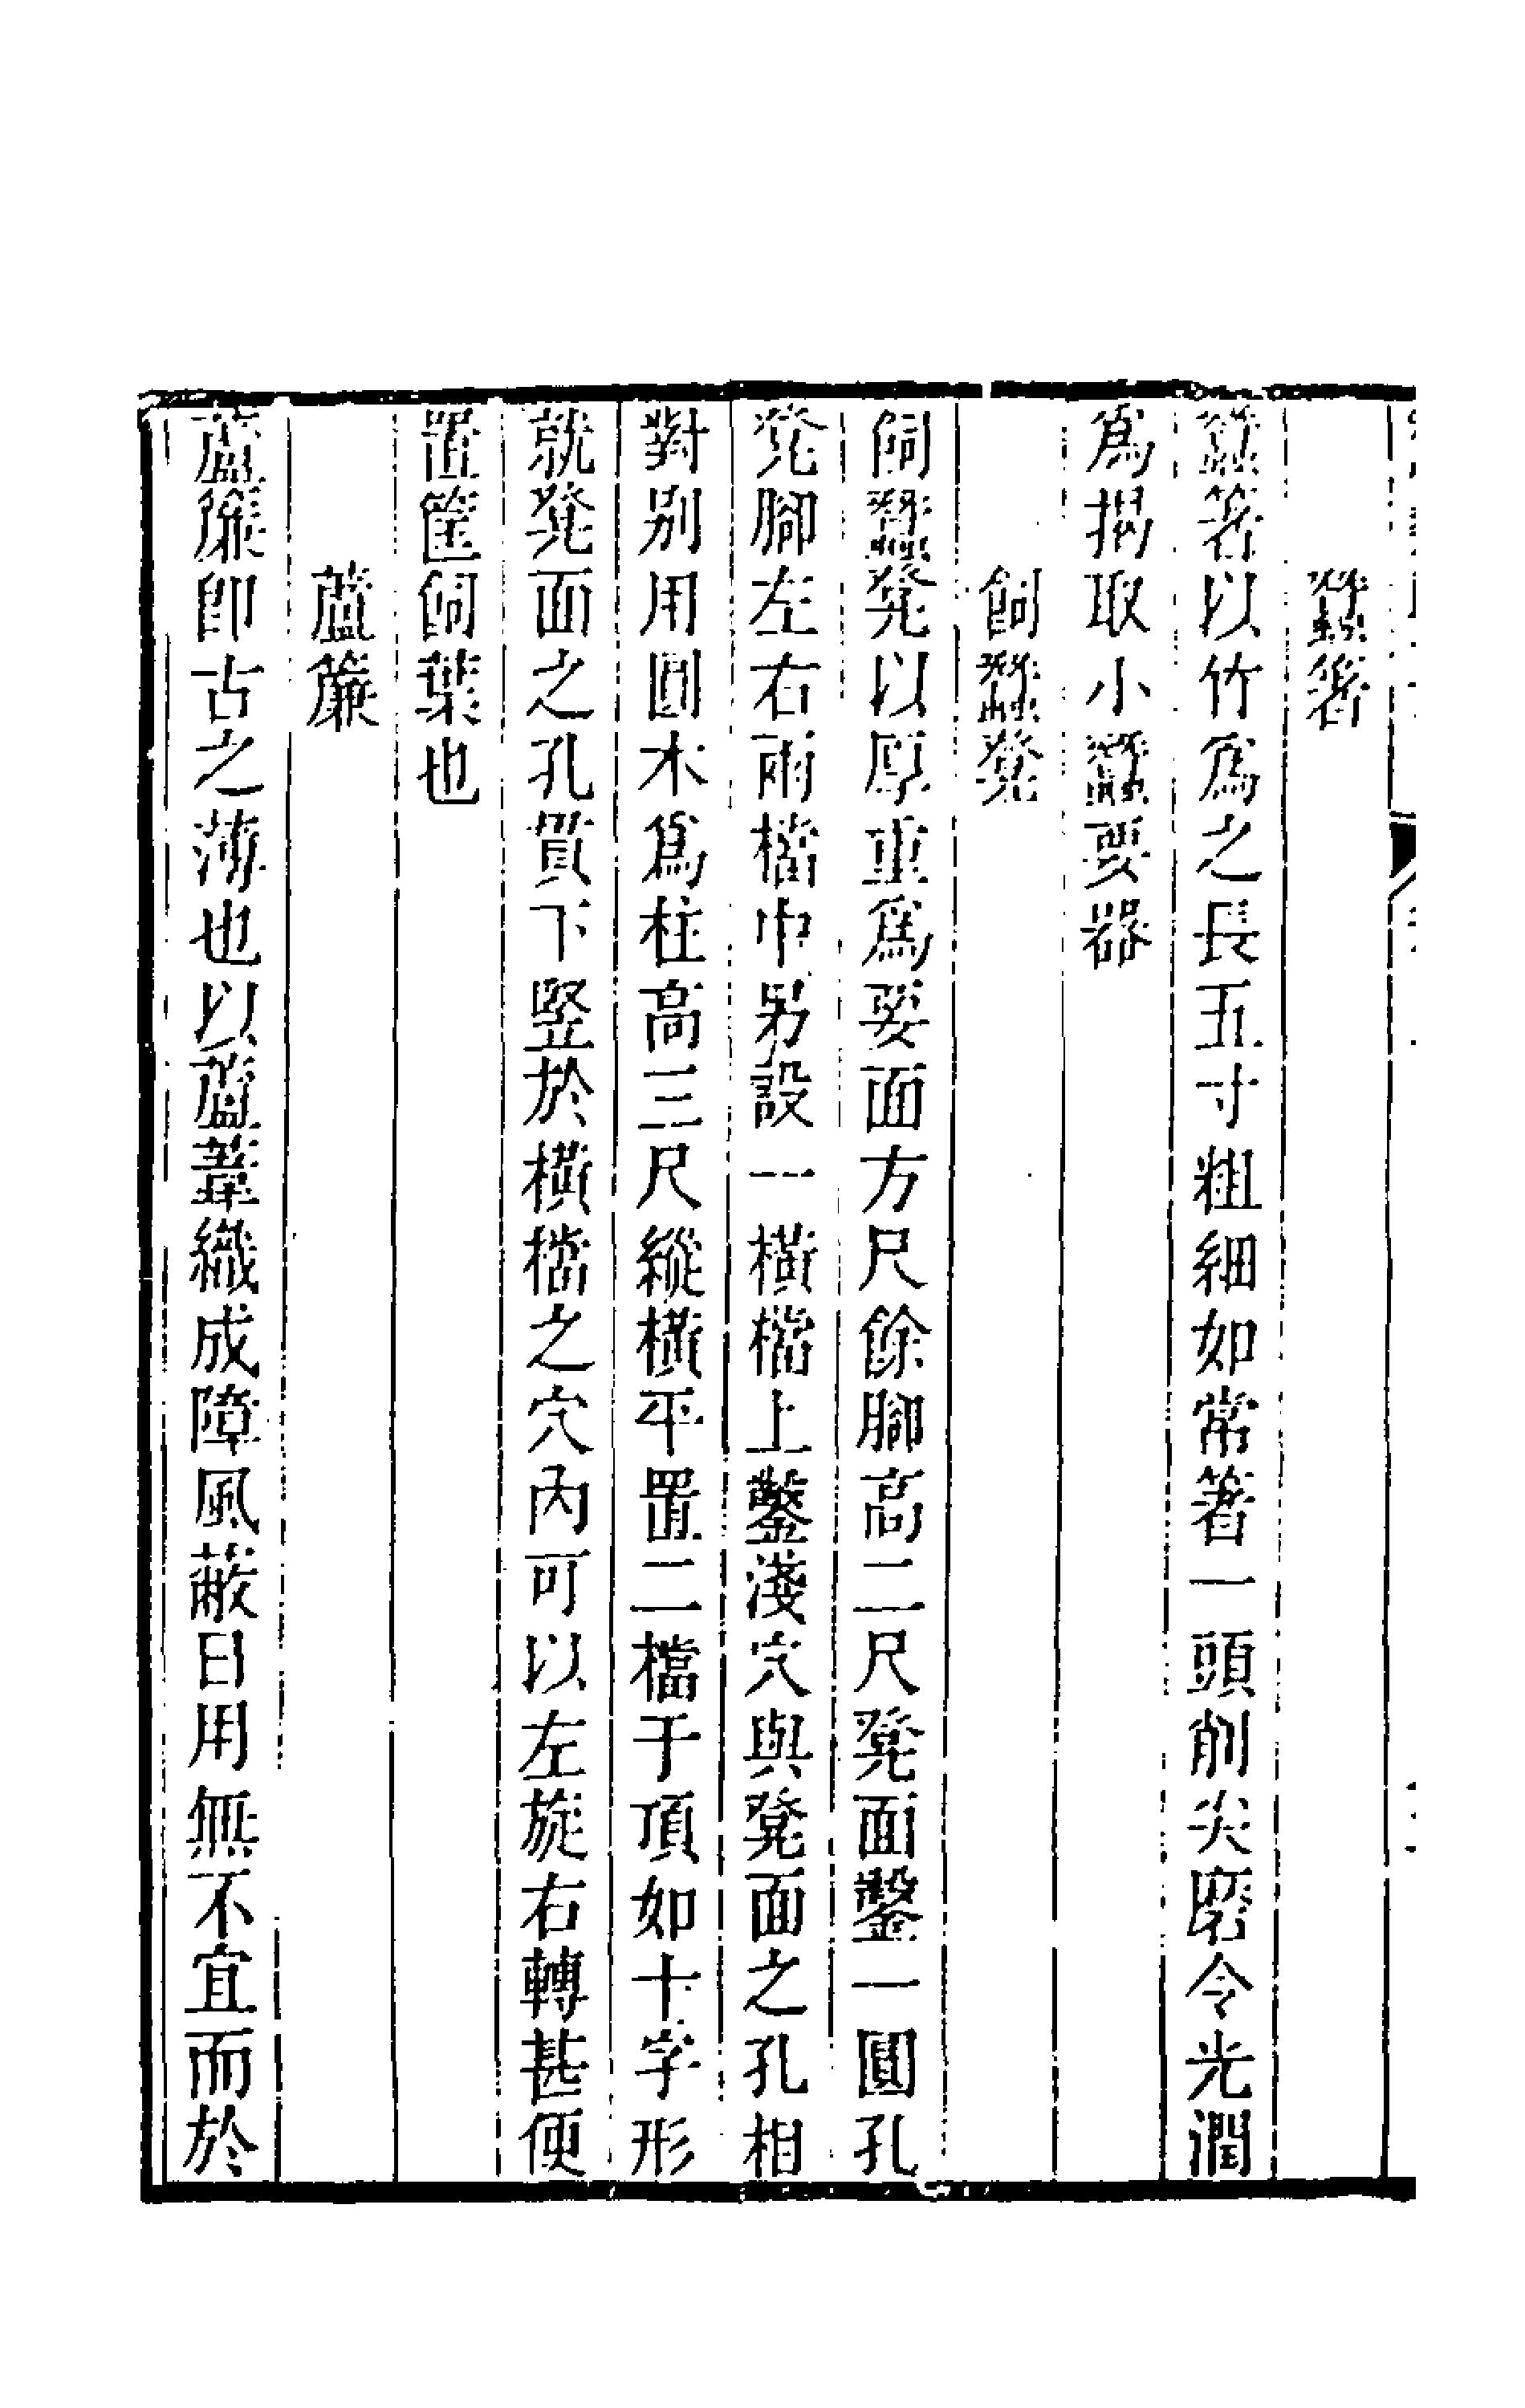 蠶箸
蠶箸以竹爲之長五寸粗細如常箸一頭削尖磨令光潤
爲搊取小蠶要器
飼蠶凳
飼蠶凳以厚重爲妥面方尺餘腳高二尺凳面鑿一圓孔
凳腳左右兩檔中另設一橫檔上鑿淺穴與凳面之孔相
對別用圓木爲柱高三尺縱橫平置二檔于頂如十字形
就凳面之孔貫下竪於橫檔之穴內可以左旋右轉甚便
置筐飼葉也
蘆簾
蘆簾卽古之薄也以蘆葦織成障風蔽日用無不宜而於